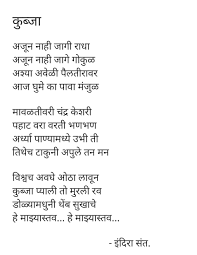 कुब्जा
अजून नाही जागी राधा
अजून नाही जागे गोकुळ
अश्या अवेळी पैलतीरावर
आज घुमे का पावा मंजुळ
मावळतीवरी चंद्र केशरी
पहाट वारा वरती भणभण
अर्ध्या पाण्यामध्ये उभी ती
तिथेच टाकुनी अपुले तन मन
विश्वच अवघे ओठा लावून
कुब्जा प्याली तो मुरली रव
डोळ्यामधुनी थेंब सुखाचे
हे माझ्यास्तव... हे माझ्यास्तव...
- इंदिरा संत.